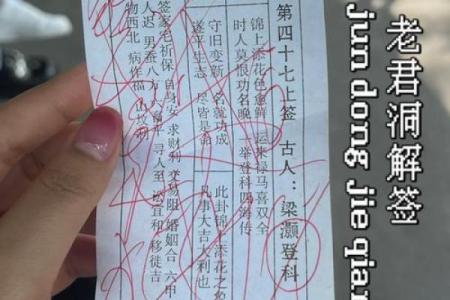 第四十七上签 古人：梁灏登科
锦上添花色愈鲜 运来禄马喜双全
时人莫恨功名晚 举登科四海传
守旧变新 名就功成
遂平生志 尽皆是命
此卦锦上添花之象
凡事大吉大利也
签 家宅祈保 自身安 求财利 交易阻 婚姻合 六甲
人迟 男蚕八方 六畜平 寻人至 讼宜和 移徙吉
物西北 病作福 山坟
老君洞解签
jun dong jie qian